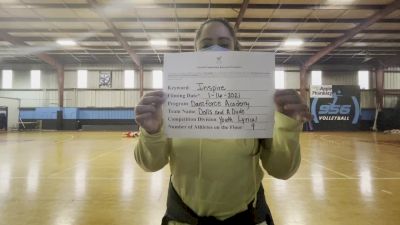 Keyword: Inspire
Filming Date: 1-16-2021
Program: Danceforce Academy
Team Name: Dolls and A Dude
Competition Division: Youth Lyrical
Number of Athletes on the Floor: 9
956
VOLLEYBALL